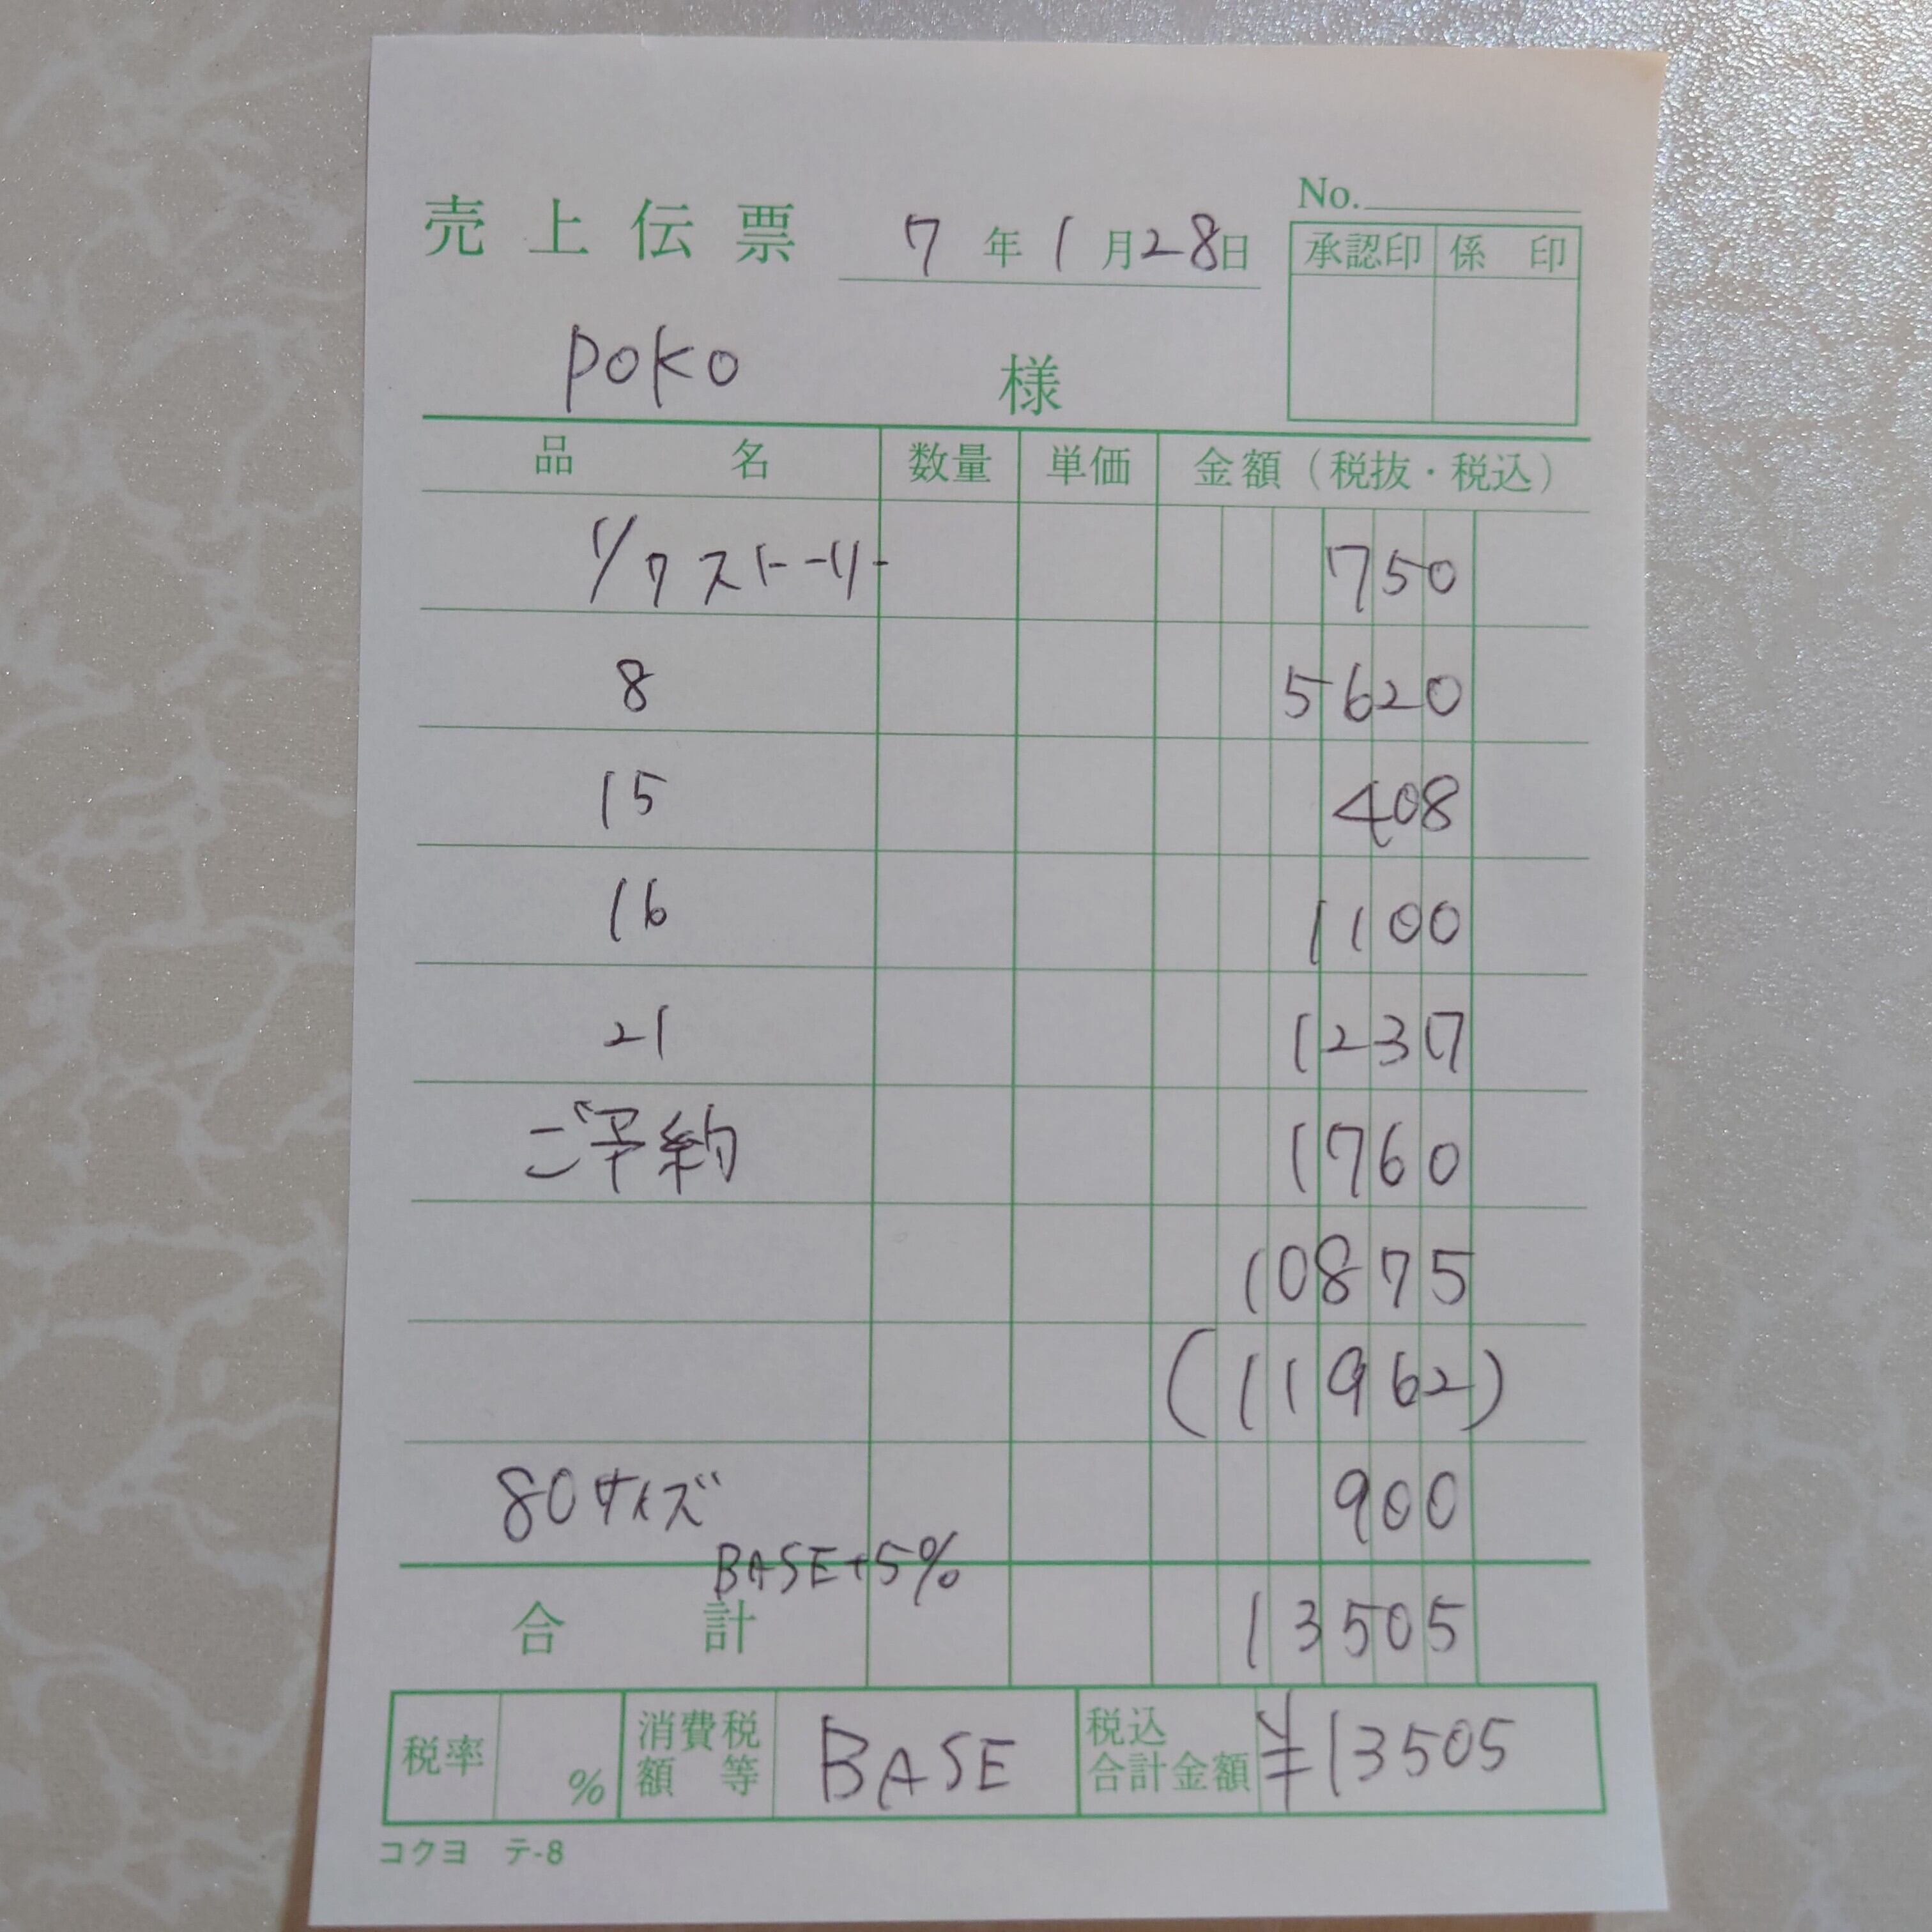 No.
売上伝票 7年1月28日
承認印 係印
poko 様
品名 数量 単価 金額（税抜・税込）
1/7ストーリー 750
8 5620
15 408
16 1100
21 1237
ご予約 1760
10875
(11962)
80サイズ 900
BASE+5%
合計 13505
税率 % 消費税額等 BASE 税込合計金額 ¥13505
コクヨ テ-8